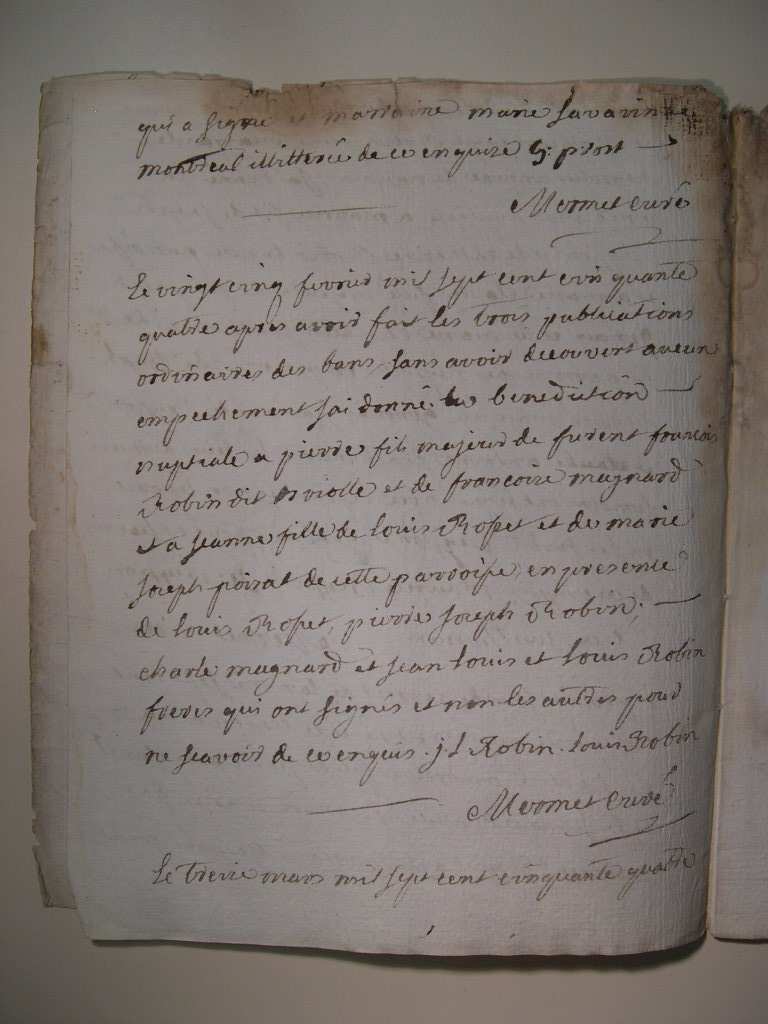 qui a signé et marraine marie savarin
montdeal illitterée de ce enquize
Mermet curé
Le vingt cinq fevrier mil sept cent cin quante
quatre apres avoir fait les trois publications
ordinaires des bans, sans avoir decouvert aucun
empechement j'ai donné la benediction
nuptiale a pierre fils majeur de furent francois
Robin dit violle et de francoise magnard
et a jeanne fille de louis Ropet et de marie
joseph poirat de cette parroisse, en presence
de louis Ropet, pierre joseph Robin,
charle magnard et jean louis et louis Robin
freres qui ont signés et non les autres pour
ne scavoir de ce enquis. j L Robin. louis Robin
Mermet curé
Le treize mars mil sept cent cinquante quatre